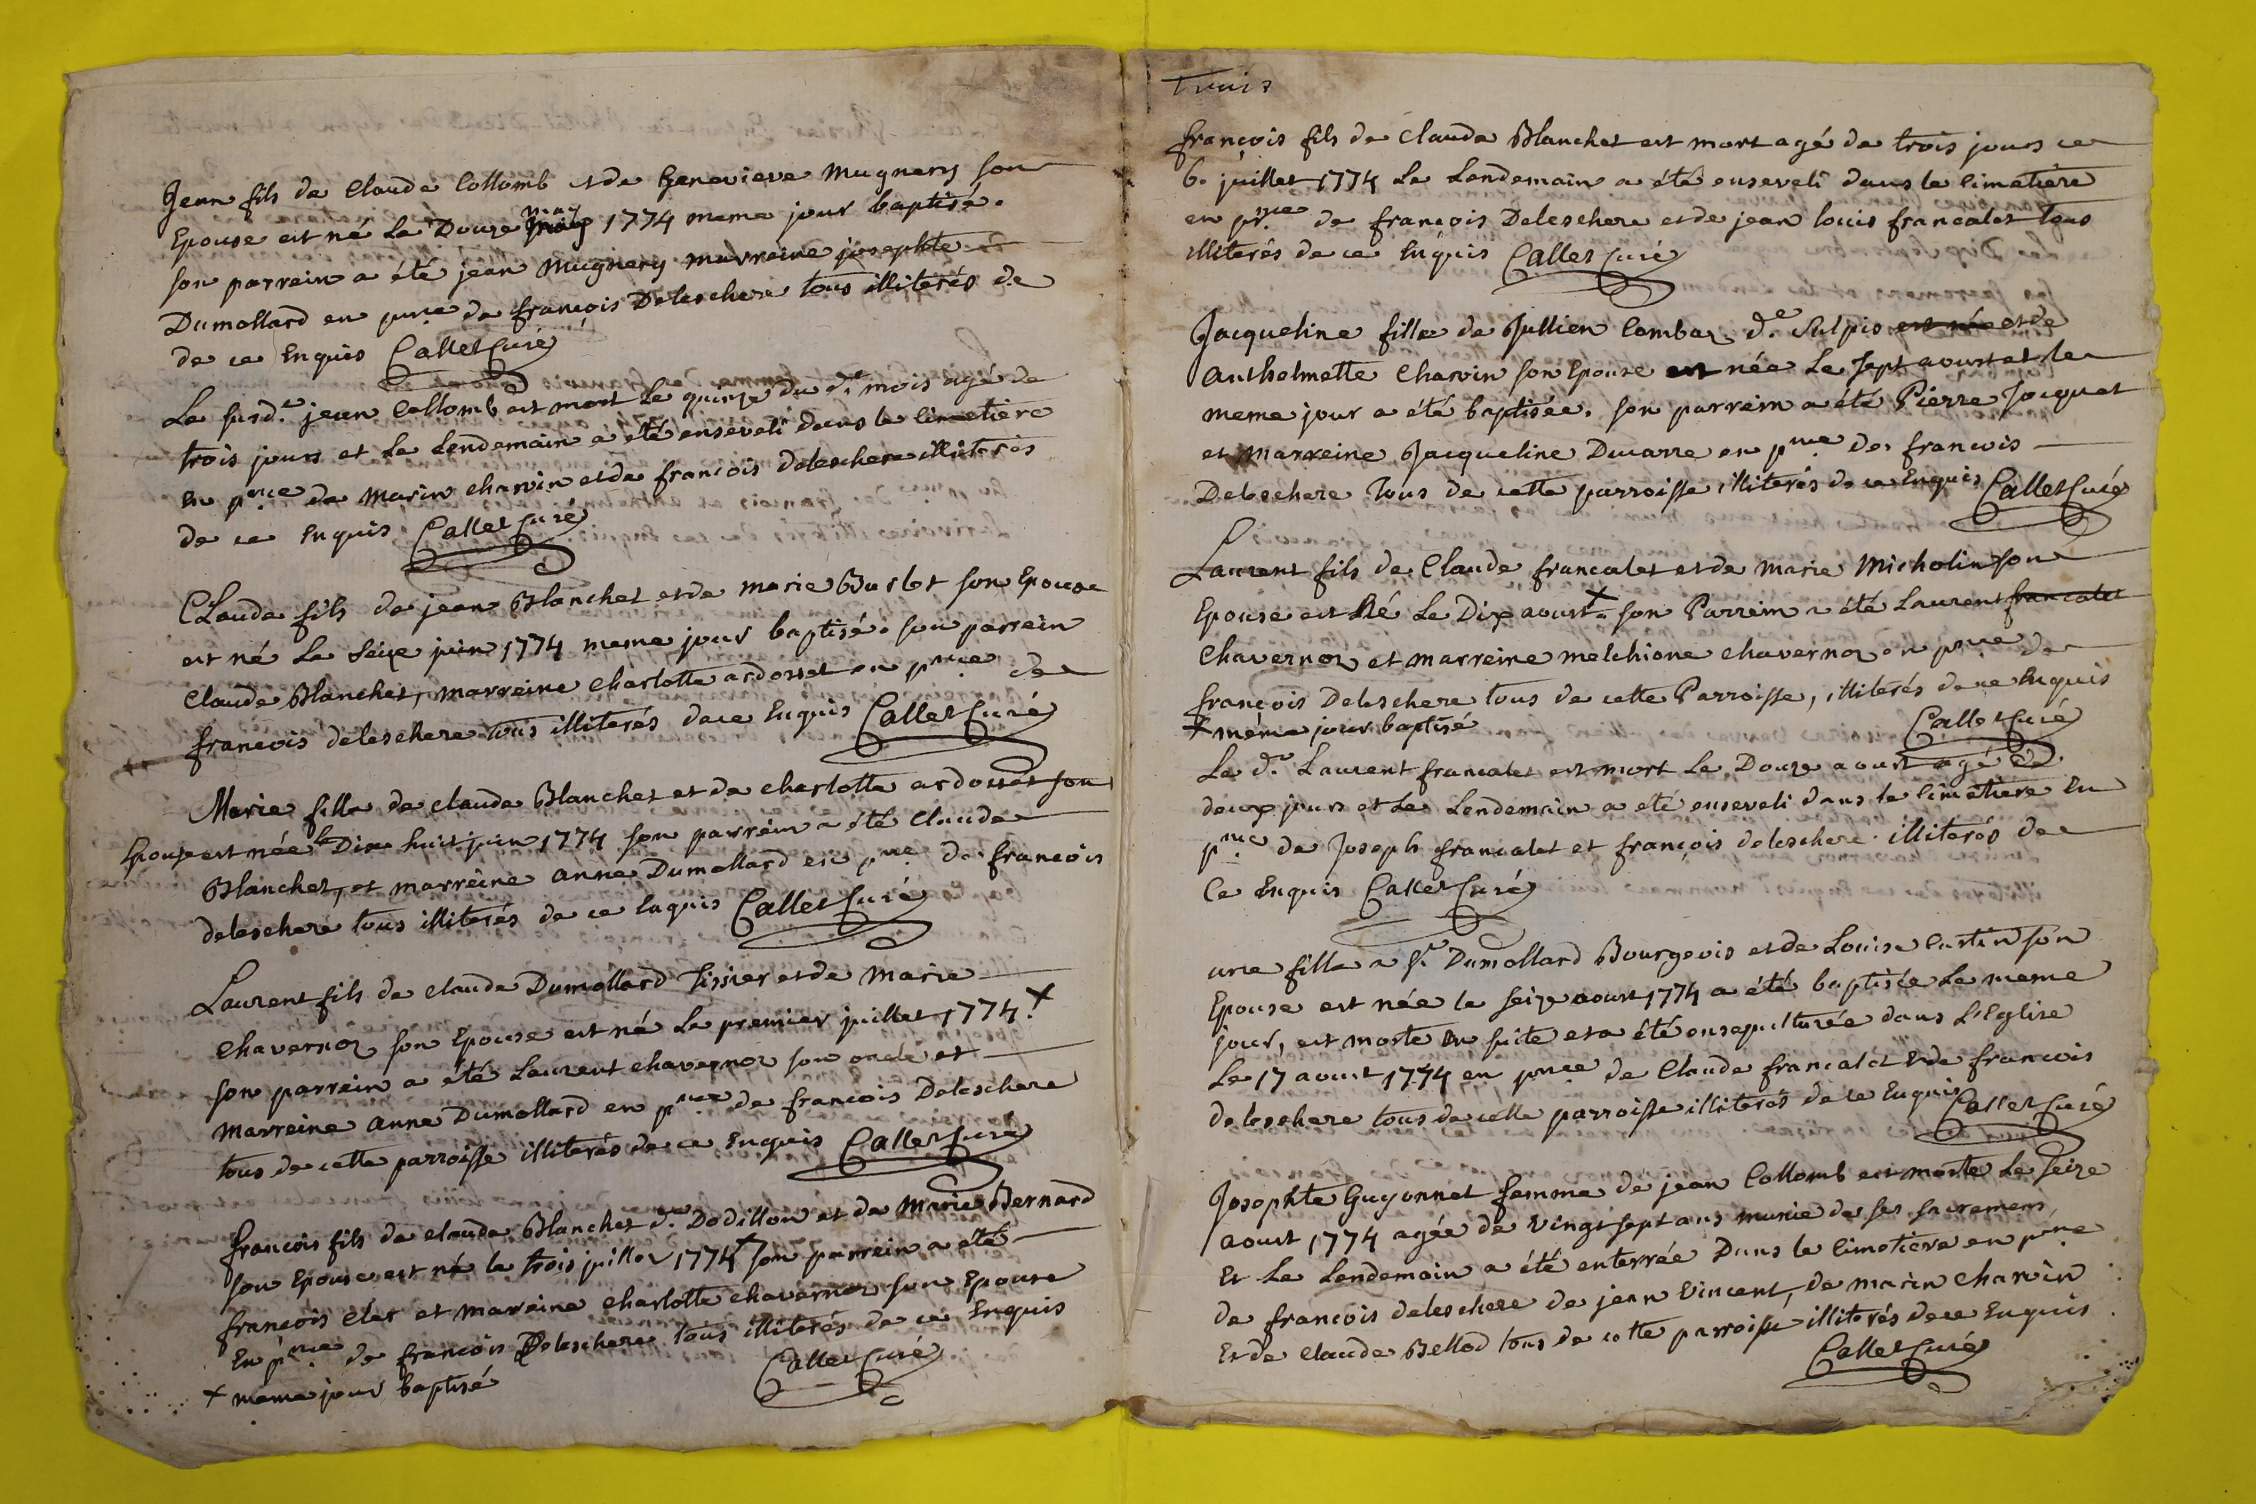 Jean fils de Claude Collomb et de Genevieve Mugnery son
Epouse est né Le Douze may 1774 meme jour baptisé.
son parrein a été jean Mugnery marreine josephte
Dumollard en pnce de françois Deleschere tous illiterés de
de ce Enquis Callet Curé
Le susd.e jean Collomb est mort Le quinze du d.t mois agé de
trois jours et Le Lendemain a été enseveli dans le Cimetiere
en pnce de Marin charvin et de francois deleschere illiterés
de ce Enquis Callet Curé
CLaude fils de jean Blanchet et de marie Burlet son Epouse
est né Le Seize juin 1774 meme jour baptisé. son parrein
Claude Blanchet, marreine Charlotte ardosset en pnce de
francois deleschere tous illiterés de ce Enquis Callet Curé
Marie fille de claude Blanchet et de charlotte ardosset son
Epouse est née le Dix huit juin 1774 son parrein a été Claude
Blanchet, et marreine anne Dumollard en pnce de francois
deleschere tous illiterés de ce Enquis Callet Curé
Laurent fils de claude Dumollard Tissier et de Marie
Chavernoz son Epouse est né Le premier juillet 1774. +
son parrein a été Laurent chavernoz son oncle et
Marreine anne Dumollard en pnce de francois Deleschere
tous de cette parroisse illiterés de ce Enquis Callet Curé
francois fils de claude Blanchet d.t Dodillon et de Marie Bernard
son Epouse est né le trois juillet 1774 + son parrein a été
francois Clet et marreine Charlotte chavernoz son Epouse
En pnce de francois Deleschere tous illiterés de ce Enquis
+ meme jour baptisé Callet Curé
Trois
françois fils de Claude Blanchet est mort agé de trois jours ce
6. juillet 1774 Le Lendemain a été enseveli dans le Cimetiere
en pnce de françois Deleschere et de jean louis francalet tous
illiterés de ce Enquis Callet Curé
Jacqueline fille de Jullien Combaz d.t Sulpis est née et de
Anthelmette Charvin son Epouse est née Le sept aoust et le
meme jour a été baptisée. son parrein a été Pierre Jacquet
et Marreine Jacqueline Ducarre en pnce de francois
Deleschere Tous de cette parroisse illiterés de ce Enquis Callet Curé
Laurent fils de Claude francalet et de Marie Micholin son
Epouse est Né Le Dix aoust + son Parrein a été Laurent francalet
Chavernoz et marreine melchione chavernoz en pnce de
françois Deleschere tous de cette Parroisse, illiterés de ce Enquis
+ même jour baptisé Callet Curé
Le d.t Laurent francalet est mort Le Douze aoust agé de
deux jours et Le Lendemain a eté enseveli dans le Cimetiere En
pnce de Joseph francalet et françois deleschere illiterés de
Ce Enquis Callet Curé
une fille a S.r Dumollard Bourgeois et de Louise Curtin son
Epouse est née le seize aoust 1774 a été baptisée Le meme
jour, est morte En suite et a été ensepulturée dans L'Eglise
Le 17 aoust 1774 en pnce de Claude francalet et de francois
deleschere tous de cette parroisse illiterés de ce Enquis Callet Curé
Josephte Guyonnet femme de jean Collomb est morte Le seize
aoust 1774 agée de vingt sept ans munie de ses sacremens
Et Le Lendemain a été enterrée Dans le Cimetiere en pnce
de francois deleschere de jean Vincent, de marin charvin
Et de Claude Bellod tous de cette parroisse illiterés de ce Enquis
Callet Curé